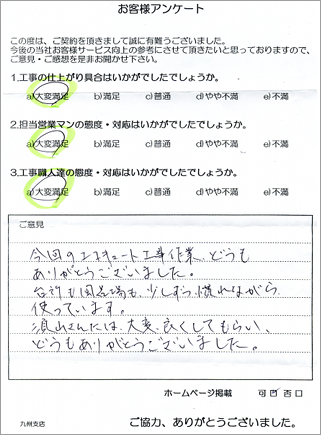 お客様アンケート
この度は、ご契約を頂きまして誠に有難うございました。
今後の当社お客様サービス向上の参考にさせて頂きたいと思っておりますので、
ご意見・ご感想を是非お聞かせ下さい。
1.工事の仕上がり具合はいかがでしたでしょうか。
a)大変満足 b)満足 c)普通 d)やや不満 e)不満
2.担当営業マンの態度・対応はいかがでしたでしょうか。
a)大変満足 b)満足 c)普通 d)やや不満 e)不満
3.工事職人達の態度・対応はいかがでしたでしょうか。
a)大変満足 b)満足 c)普通 d)やや不満 e)不満
ご意見
今回のエコキュート工事作業、どうも
ありがとうございました。
台所も風呂場も、少しずつ慣れながら
使っています。
須山さんには、大変、良くしてもらい、
どうもありがとうございました。
ホームページ掲載 可口 否口
九州支店
ご協力、ありがとうございました。